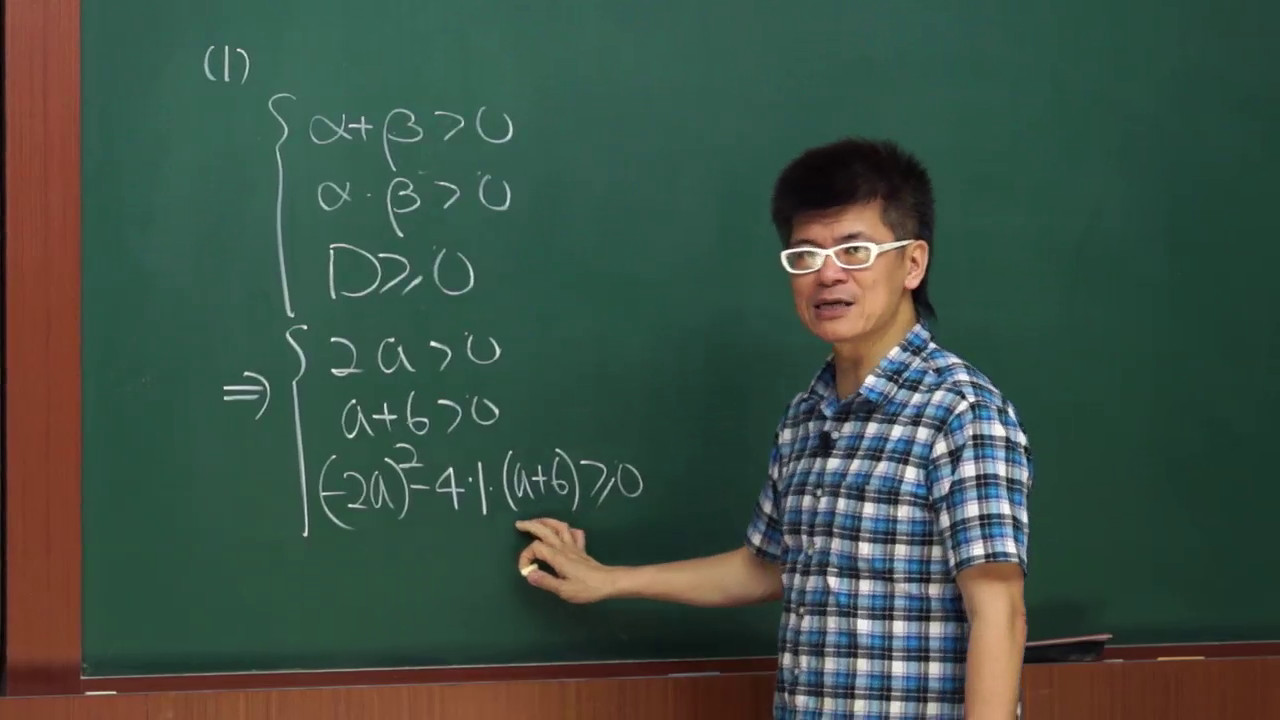 (1)
α+β>0
α·β>0
D≥0
⇒ 2a>0
a+6>0
(-2a)²-4·1·(a+6)≥0